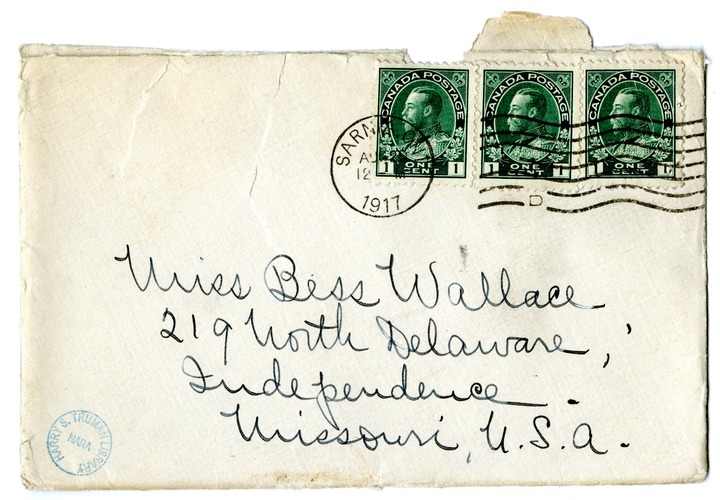 CANADA POSTAGE CANADA POSTAGE CANADA POSTAGE
1 ONE CENT 1 1 ONE CENT 1 1 ONE CENT 1
1917
D
Miss Bess Wallace
219 North Delaware,
Independence.
Missouri, U.S.A.
HARRY S. TRUMAN LIBRARY
NARA